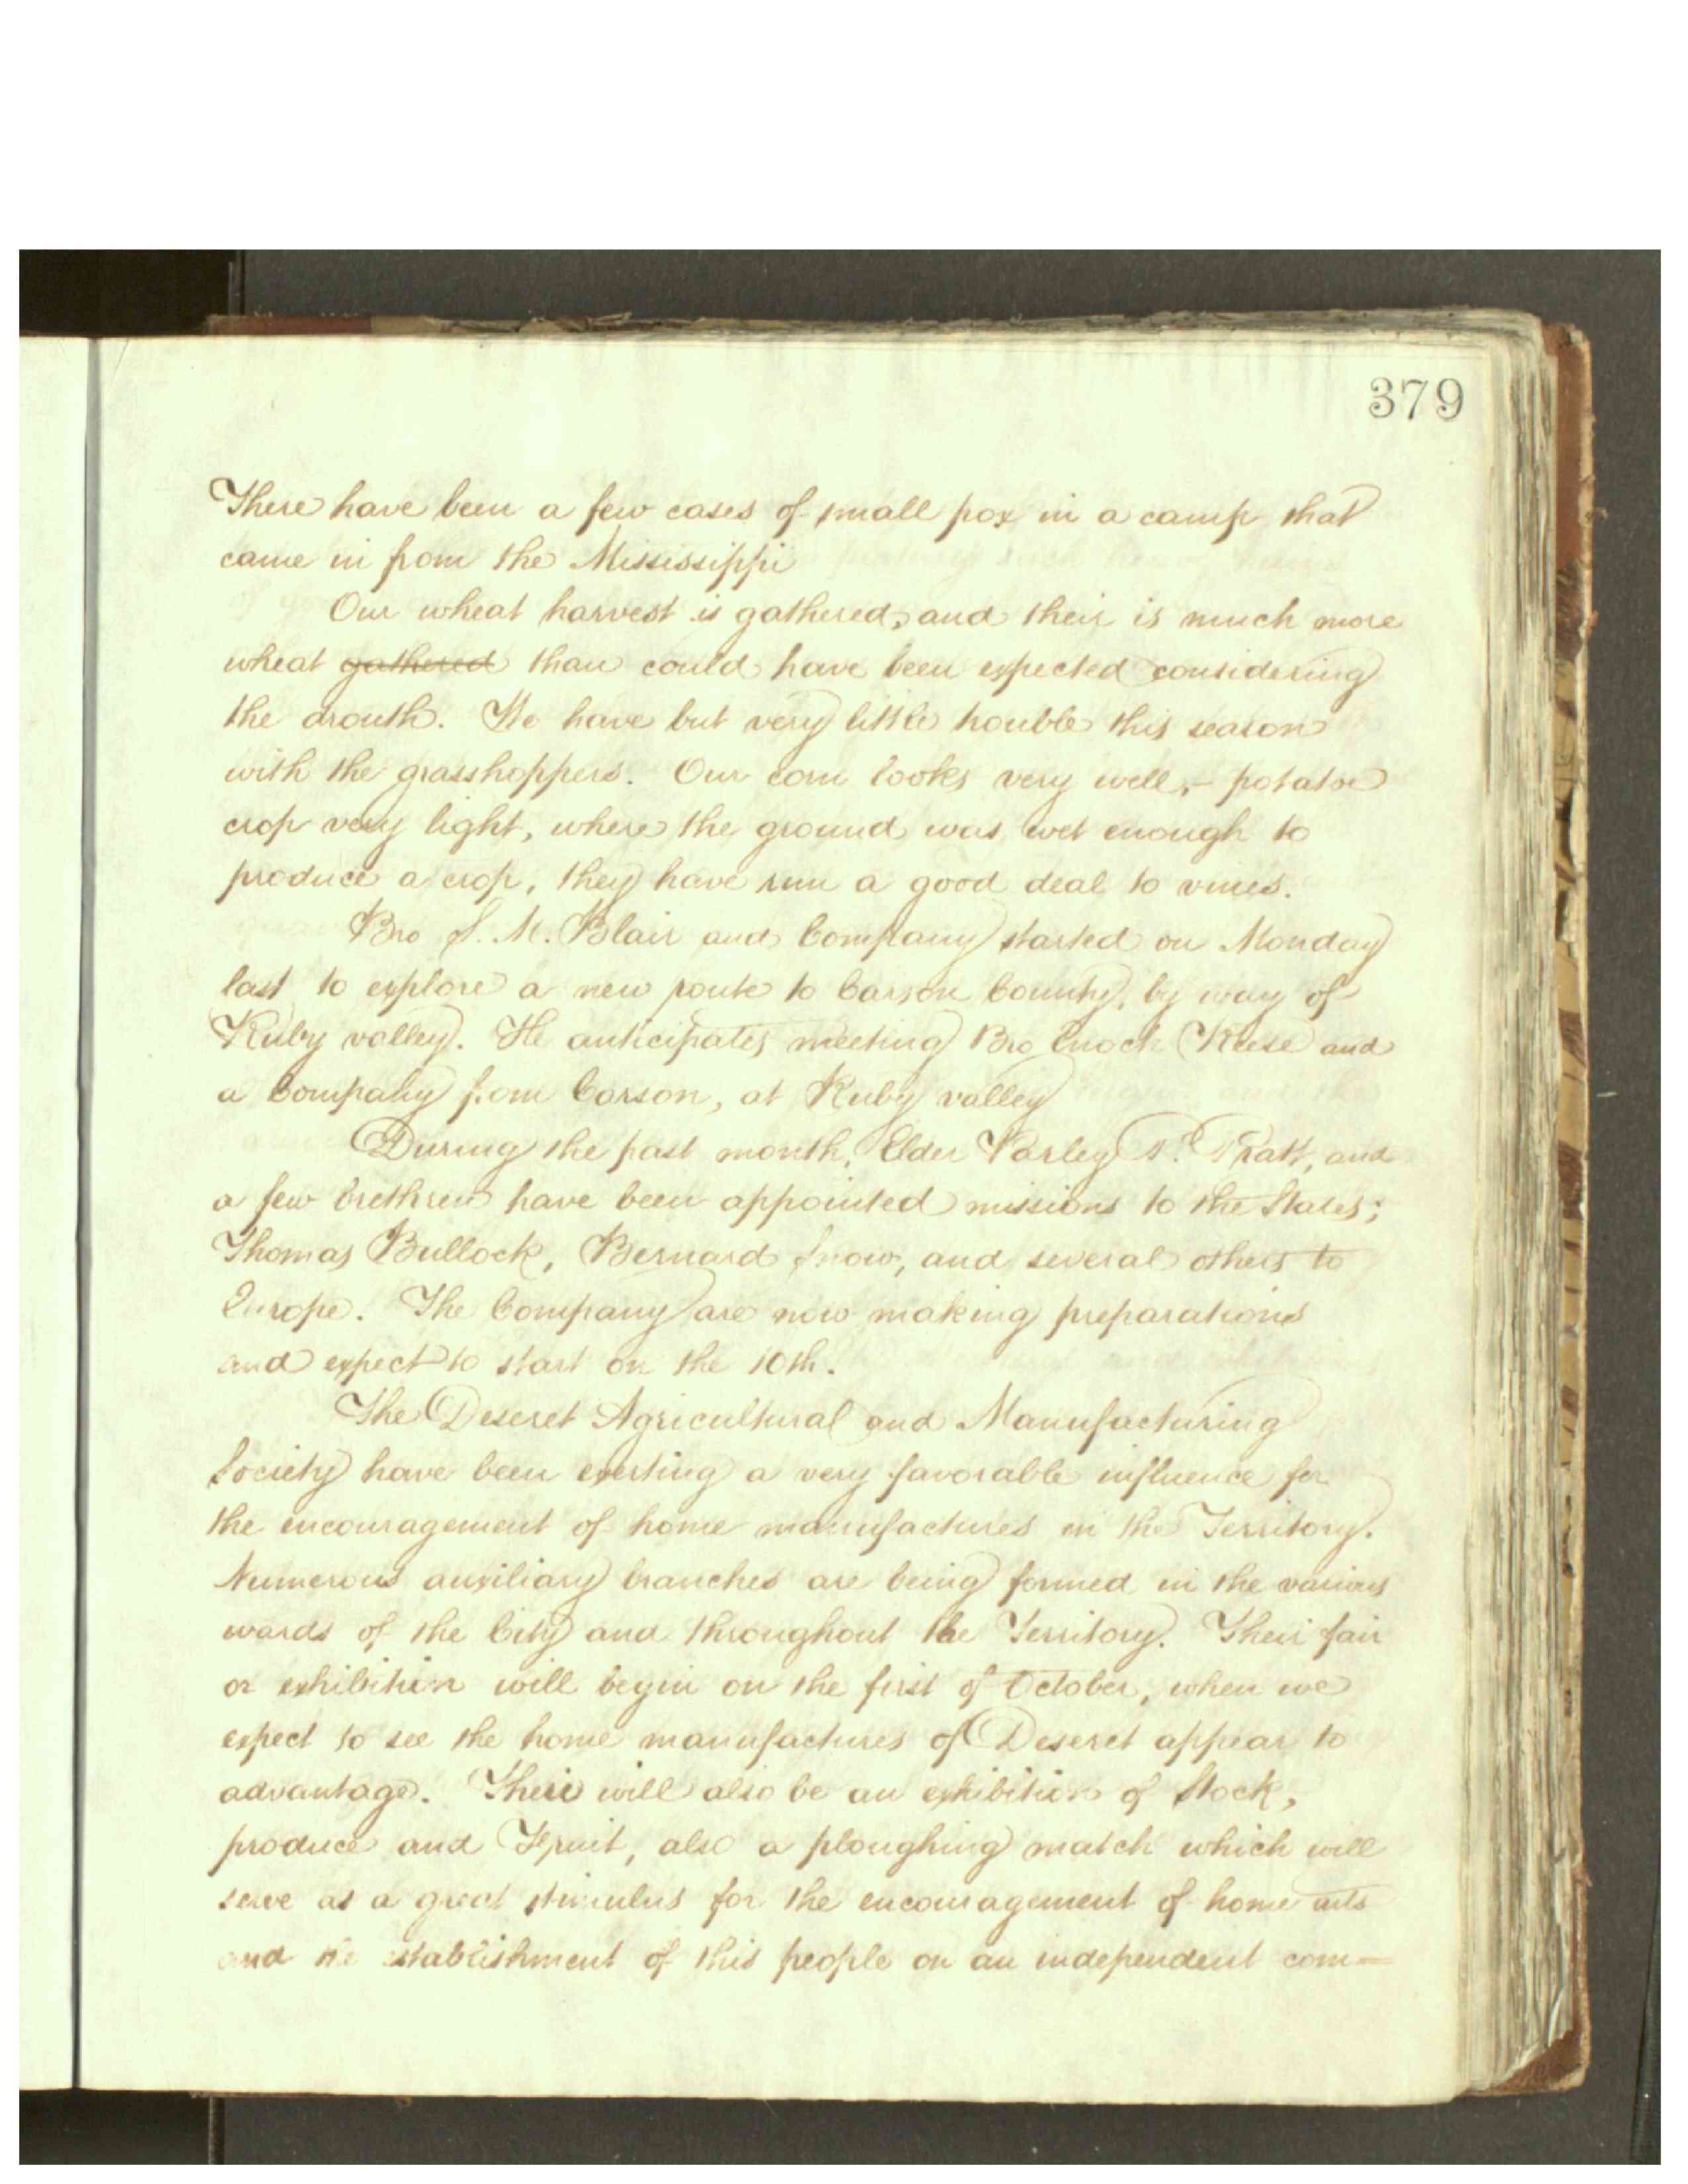 379
There have been a few cases of small pox in a camp that
came in from the Mississippi
Our wheat harvest is gathered, and their is much more
wheat gathered than could have been expected considering
the drouth. We have but very little trouble this season
with the grasshoppers. Our corn looks very well,- potatoe
crop very light, where the ground was wet enough to
produce a crop, they have run a good deal to vines.
Bro S. M. Blair and Company started on Monday
last to explore a new route to Carson County, by way of
Ruby valley. He anticipates meeting Bro Enoch Reese and
a Company from Carson, at Ruby valley
During the past month, Elder Parley P. Pratt, and
a few brethren have been appointed missions to the States;
Thomas Bullock, Bernard Snow, and several others to
Europe. The Company are now making preparations
and expect to start on the 10th.
The Deseret Agricultural and Manufacturing
Society have been exerting a very favorable influence for
the encouragement of home manufactures in the Territory.
Numerous auxiliary branches are being formed in the various
wards of the City and throughout the Territory. Their fair
or exhibition will begin on the first of October, when we
expect to see the home manufactures of Deseret appear to
advantage. Their will also be an exhibition of Stock,
produce and Fruit, also a ploughing match which will
serve as a great stimulus for the encouragement of home arts
and the establishment of this people on an independent com-